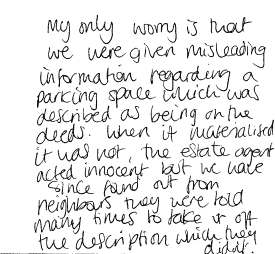 My only worry is that
we were given misleading
information regarding a
parking space which was
described as being on the
deeds. When it materialised
it was not, the estate agent
acted innocent but we have
since found out from
neighbours they were told
many times to take it off
the description which they
didn't.